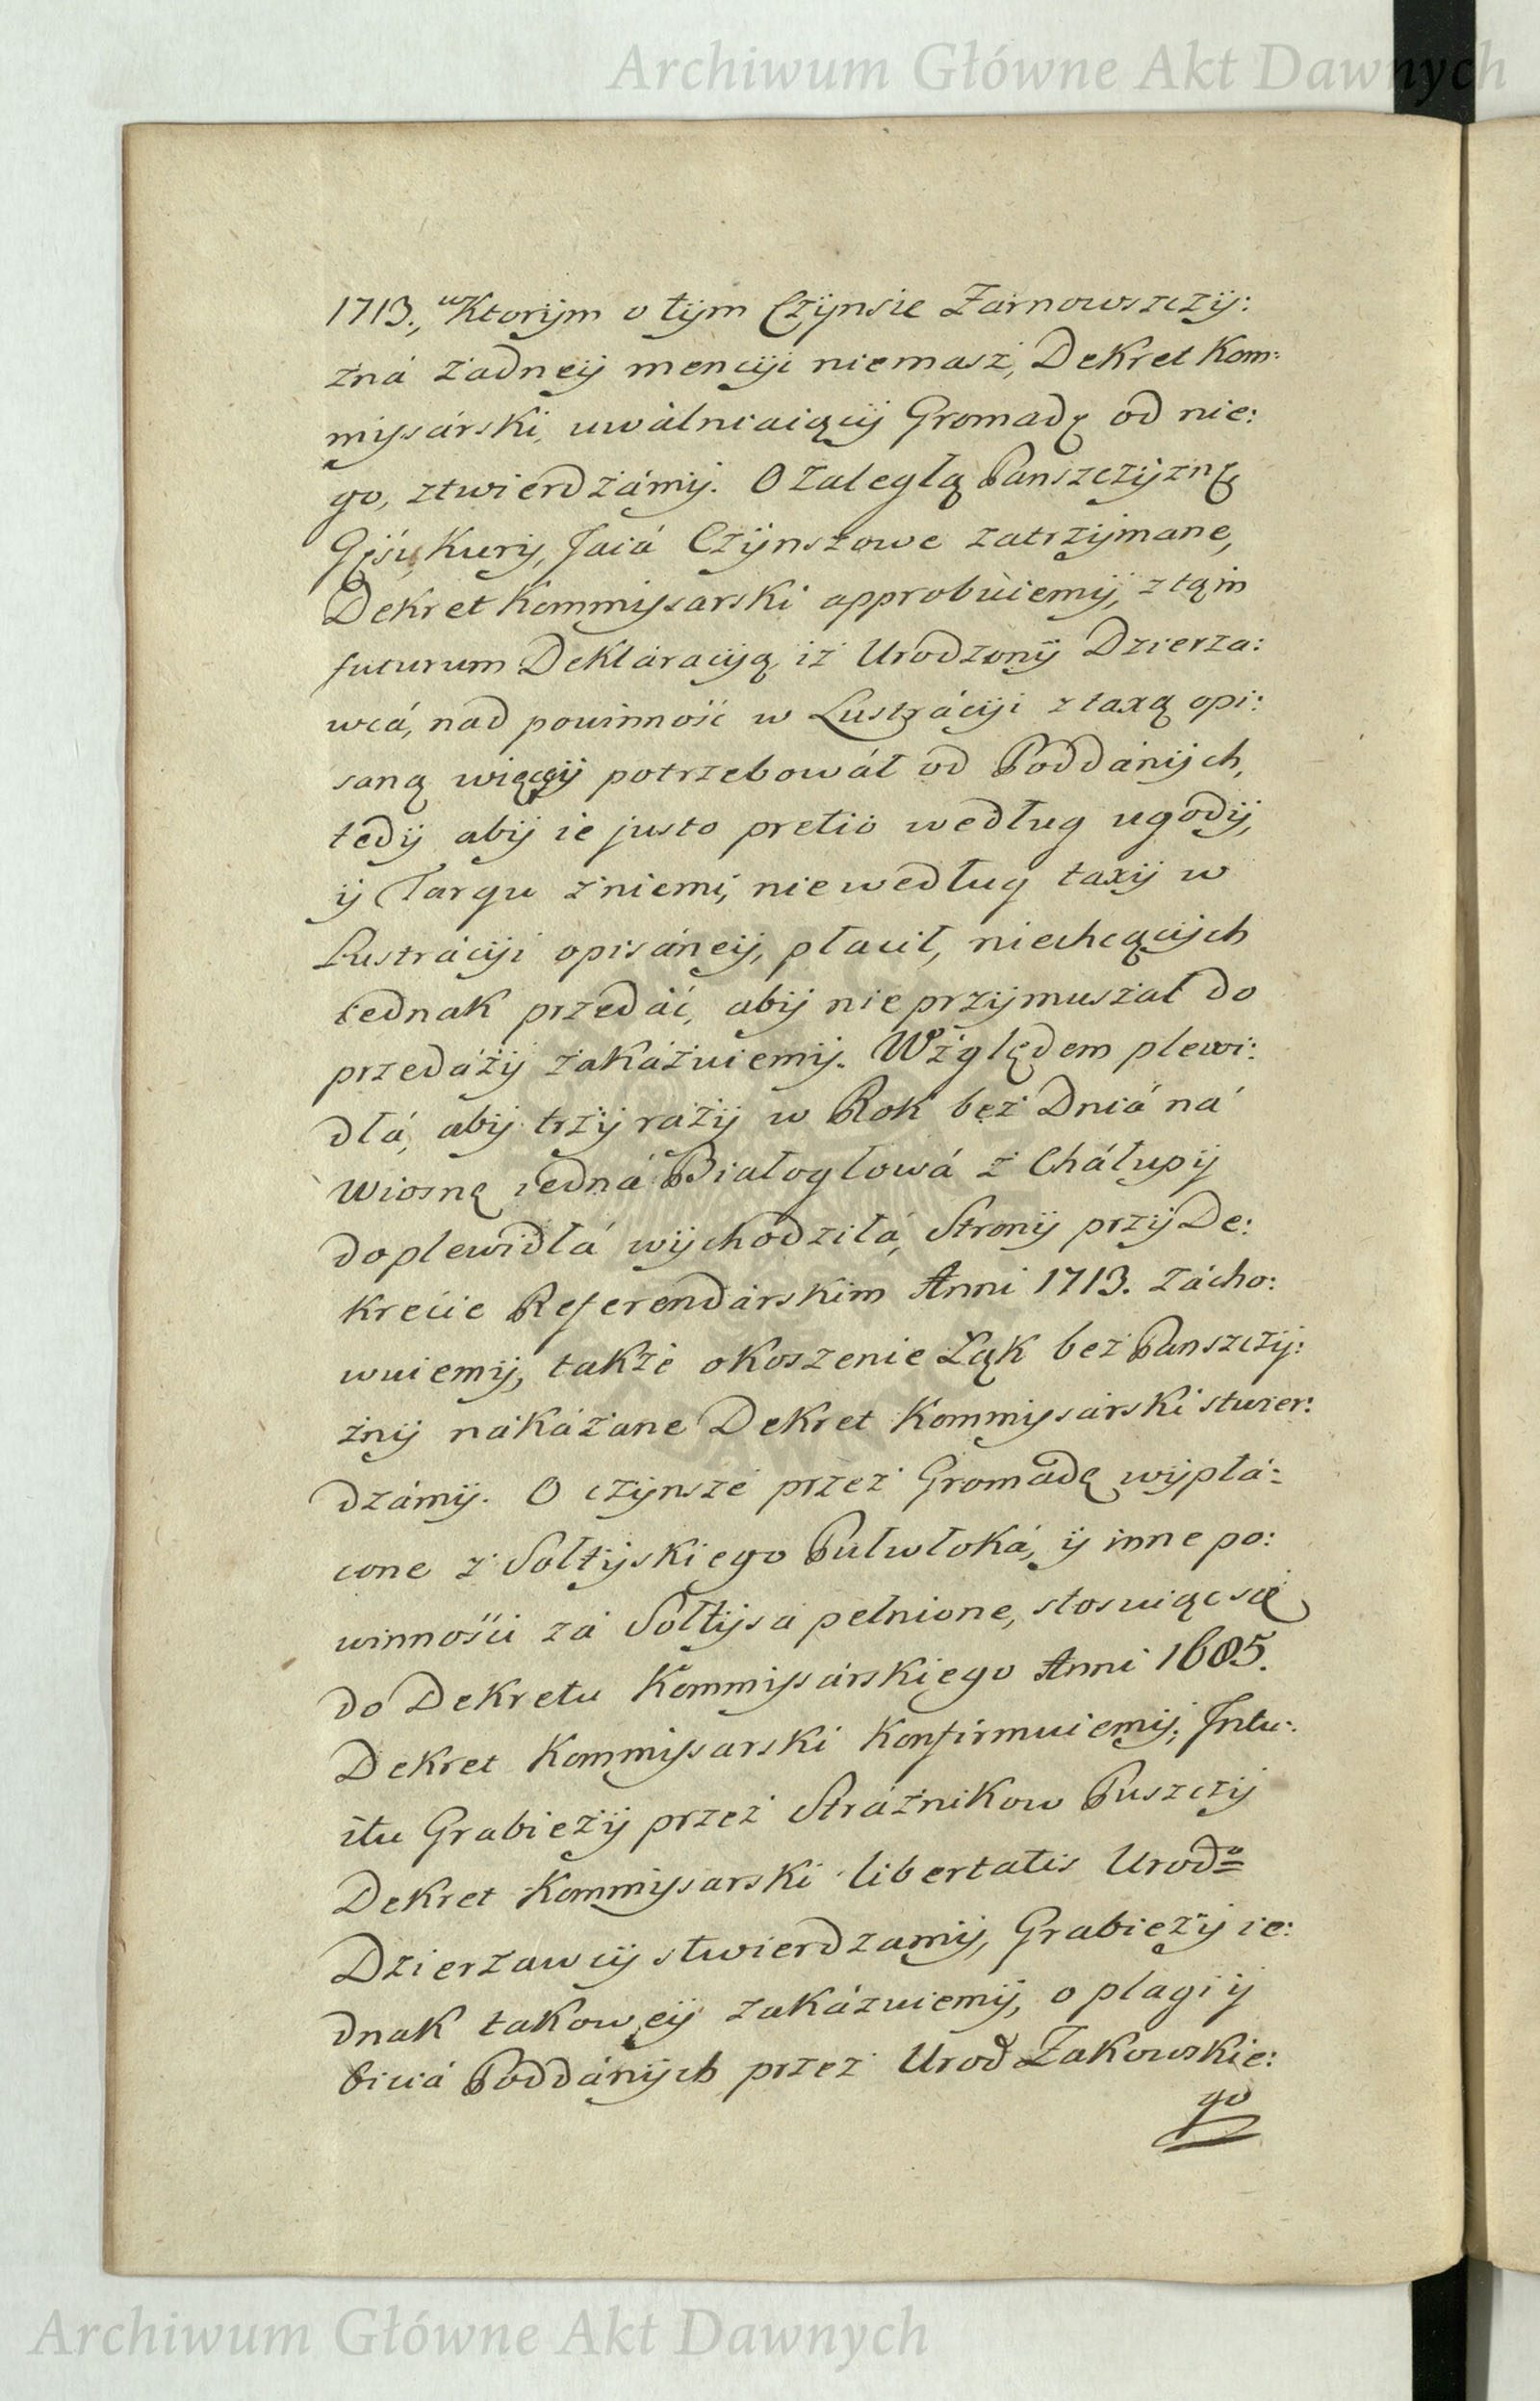 Archiwum Główne Akt Dawnych
1713., w Ktorym o tym Czynsie Zarnowszczy:
zná zadney mencyi niemasz, Dekret Kom:
myssárski, uwálniaiący Gromadę od nie:
go, ztwierdzámy. O Zaległą Panszczyznę
Gęsi, Kury, Jaiá Czynszowe zatrzymane,
Dekret Kommyssarski approbuiemy, z tą in
futurum Deklaracyją iż Urodzony Dzierza:
wcá, nad powinność w Lustrácyi z taxą opi:
saną więcey potrzebowáł od Poddánych,
tedy aby ie justo pretio według ugody,
y Targu z niemi, nie według taxy w
Lustrácyi opisáney, płacił, niechcących
iednak przedáć, aby nie przymuszał do
przedáży zakázuiemy. Względem plewi:
dłá, aby trzy rázy w Rok bez Dniá ná
Wiosnę iedná Białogłowá z Cháłupy
do plewidłá wychodziłá, Strony przy De:
krecie Referendárskim Anni 1713. zácho:
wuiemy, także okoszenie Ląk bez Panszczy:
zny nakázane Dekret Kommyssárski stwier:
dzámy. O czynsze przez Gromadę wypłá:
cone z Sołtyskiego Pułwłoká, y inne po:
winności zá Sołtysá pełnione, stosuiąc się
do Dekretu Kommyssárskiego Anni 1685.
Dekret Kommyssarski Konfirmuiemy; Intu:
itu Grabieży przez Stráżnikow Puszczy
Dekret Kommyssarski libertatis Urodo
Dzierzawcy stwierdzamy, Grabieży ie:
dnak takowey zakázuiemy, o plagi y
biciá Poddánych przez Urod Zakowskie:
go
Archiwum Główne Akt Dawnych